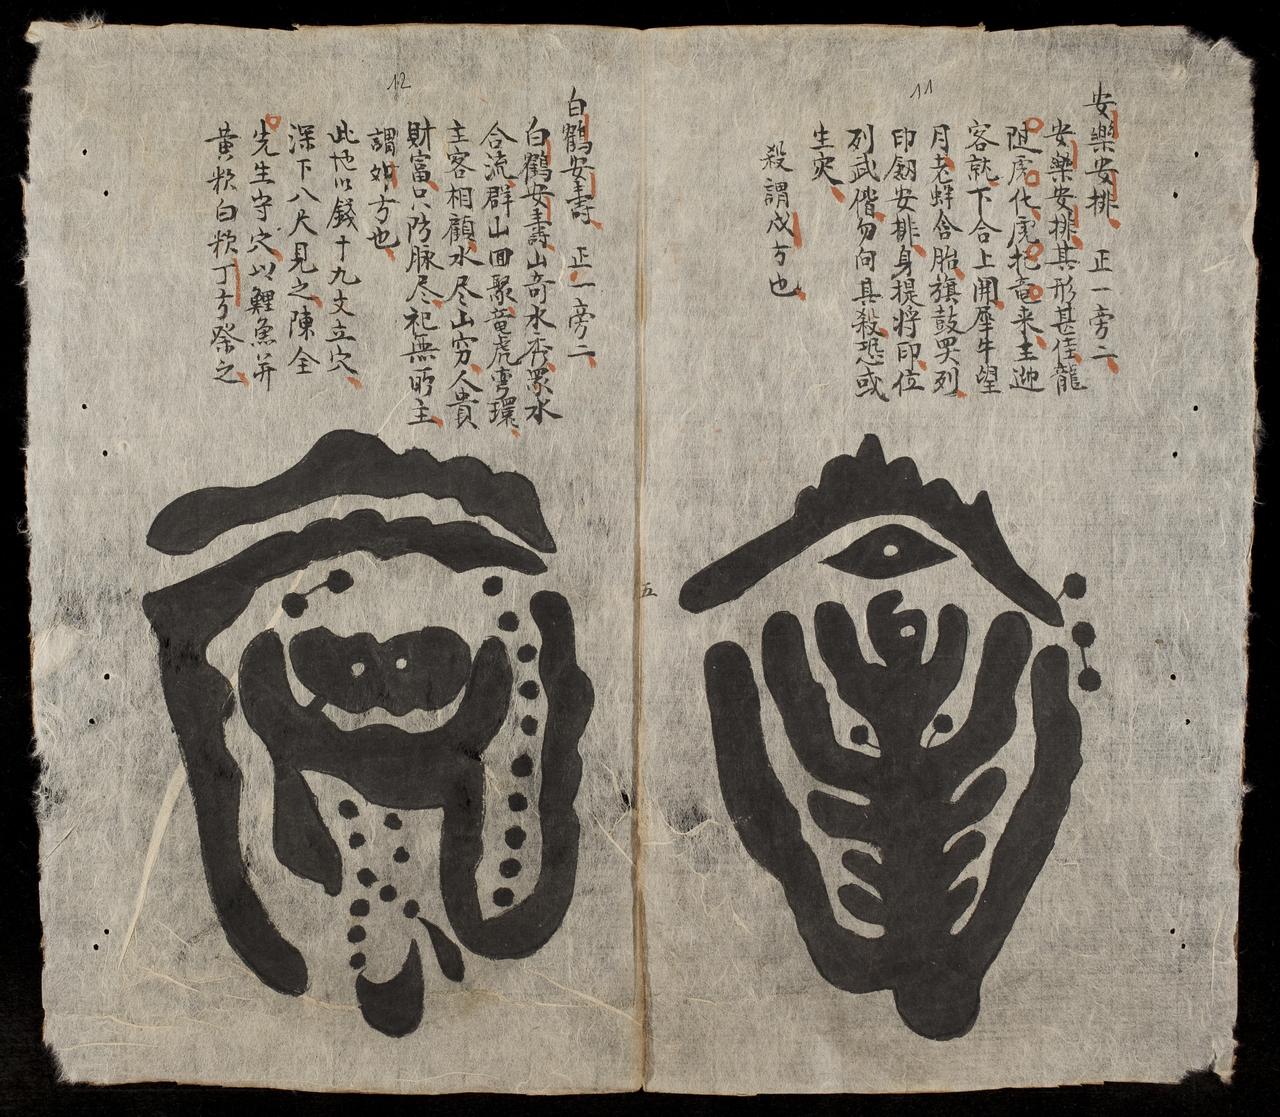 11
安樂安排 正一旁二
安樂安排其形甚佳龍
阻虎化虎抱竜来主迎
客就下合上開犀牛望
月老蚌含胎旗鼓哭列
印劔安排身提將印位
列武偕勿向其殺恐或
生灾
殺謂戍方也
12
白鶴安壽 正一旁二
白鶴安壽山奇水秀衆水
合流群山回聚竜虎弯環
主客相顧水尽山穷人貴
財富只防脉尽祀無所主
謂卯方也
此地以錢十九文立穴
深下八尺見之陳全
先生守穴以鯉魚并
黃粄白粄丁方祭之
五